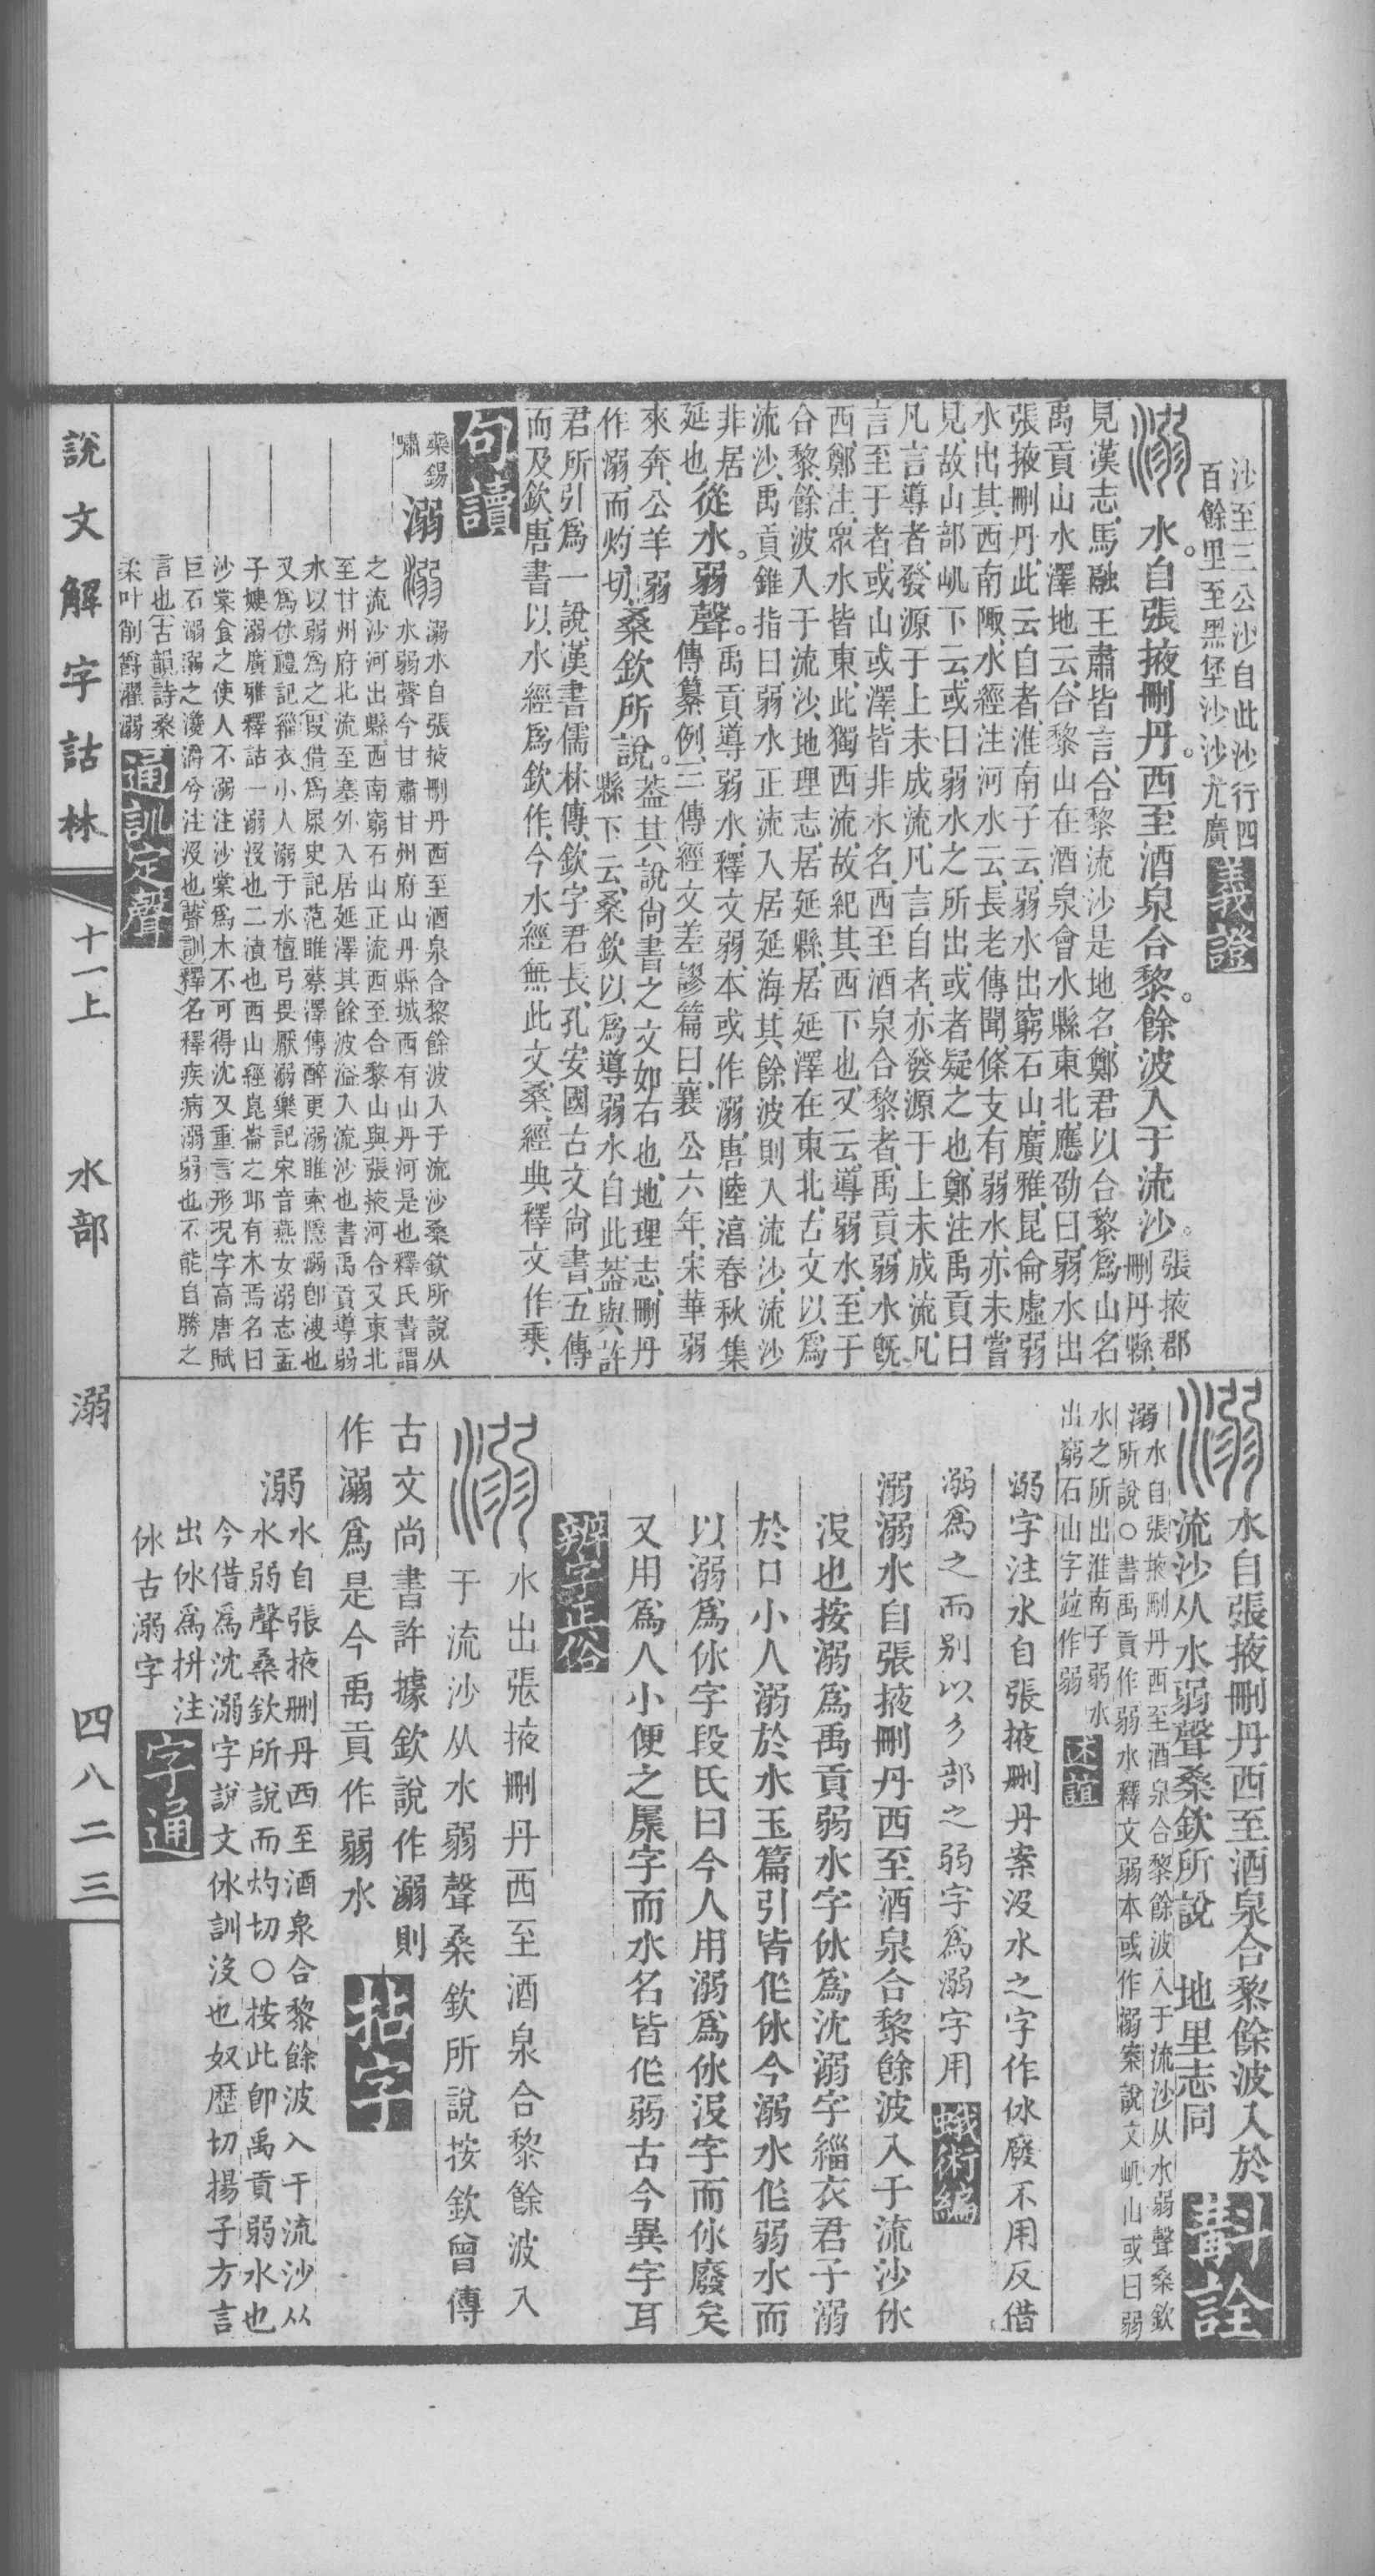 沙至三公沙自此沙行四
百餘里至黑堡沙沙尤廣
義證
溺水自張掖刪丹西至酒泉合黎餘波入于流沙張掖郡
刪丹縣
見漢志馬融王肅皆言合黎流沙是地名鄭君以合黎爲山名
禹貢山水澤地云合黎山在酒泉會水縣東北應劭曰弱水出
張掖刪丹此云自者淮南子云弱水出窮石山廣雅昆侖虛弱
水出其西南陬水經注河水云長老傳聞條支有弱水亦未嘗
見故山部屼下云或曰弱水之所出或者疑之也鄭注禹貢曰
凡言導者發源于上未成流凡言自者亦發源于上未成流凡
言至于者或山或澤皆非水名西至酒泉合黎者禹貢弱水旣
西鄭注眾水皆東此獨西流故紀其西下也又云導弱水至于
合黎餘波入于流沙地理志居延縣居延澤在東北古文以爲
流沙禹貢錐指曰弱水正流入居延海其餘波則入流沙流沙
非居
延也從水弱聲禹貢導弱水釋文弱本或作溺唐陸淳春秋集
傳纂例三傳經文差謬篇曰襄公六年宋華弱
來奔公羊弱
作溺而灼切桑欽所說葢其說尙書之文如右也地理志刪丹
縣下云桑欽以爲導弱水自此葢與許
君所引爲一說漢書儒林傳欽字君長孔安國古文尙書五傳
而及欽唐書以水經爲欽作今水經無此文桑經典釋文作桒
句讀
藥錫
嘯
溺
溺水自張掖刪丹西至酒泉合黎餘波入于流沙桑欽所說从
水弱聲今甘肅甘州府山丹縣城西有山丹河是也釋氏書謂
之流沙河出縣西南窮石山正流西至合黎山與張掖河合又東北
至甘州府北流至塞外入居延澤其餘波溢入流沙也書禹貢導弱
水以弱爲之叚借爲尿史記范睢蔡澤傳醉更溺睢索隱溺卽溲也
又爲㲻禮記緇衣小人溺于水檀弓畏厭溺樂記宋音燕女溺志孟
子嫂溺廣雅釋詁一溺沒也二漬也西山經崑崙之邱有木焉名曰
沙棠食之使人不溺注沙棠爲木不可得沈又重言形況字高唐賦
巨石溺溺之瀺灂兮注沒也聲訓釋名釋疾病溺弱也不能自勝之
言也古韻詩桑
柔叶削爵濯溺
通訓定聲
水自張掖刪丹西至酒泉合黎餘波入於
流沙从水弱聲桑欽所說　地里志同
斠詮
溺水自張掖刪丹西至酒泉合黎餘波入于流沙从水弱聲桑欽
所說○書禹貢作弱水釋文弱本或作溺案說文屼山或曰弱
水之所出淮南子弱水
出窮石山字竝作弱
述誼
溺字注水自張掖刪丹案沒水之字作㲻廢不用反借
溺爲之而别以彡部之弱字爲溺字用
蛾術編
溺溺水自張掖刪丹西至酒泉合黎餘波入于流沙㲻
沒也按溺爲禹貢弱水字㲻爲沈溺字緇衣君子溺
於口小人溺於水玉篇引皆作㲻今溺水作弱水而
以溺爲㲻字段氏曰今人用溺爲㲻沒字而㲻廢矣
又用爲人小便之㞙字而水名皆作弱古今異字耳
辨字正俗
水出張掖刪丹西至酒泉合黎餘波入
于流沙从水弱聲桑欽所說按欽曾傳
古文尚書許據欽說作溺則
作溺爲是今禹貢作弱水
拈字
溺水自張掖刪丹西至酒泉合黎餘波入于流沙从
水弱聲桑欽所說而灼切○按此卽禹貢弱水也
今借爲沈溺字說文㲻訓沒也奴歴切揚子方言
出㲻爲抍注
㲻古溺字
字通
說文解字詁林
十一上
水部
溺
四八二三